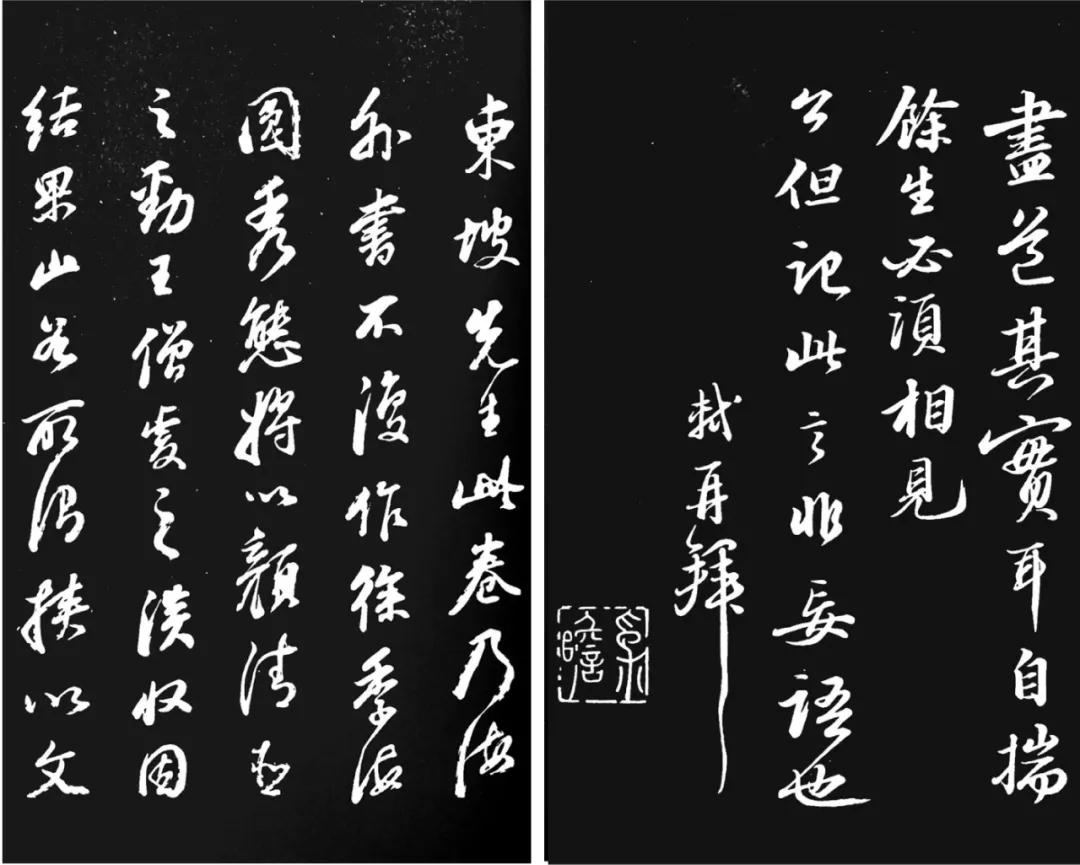 盡道其實耳自揣
餘生必須相見
公但記此言非妄語也
軾再拜
東坡先生此卷乃海
外書不復作徐季海
圓秀態將以顏清臣
之勁王僧虔之淡收因
結果山谷所得挾以文